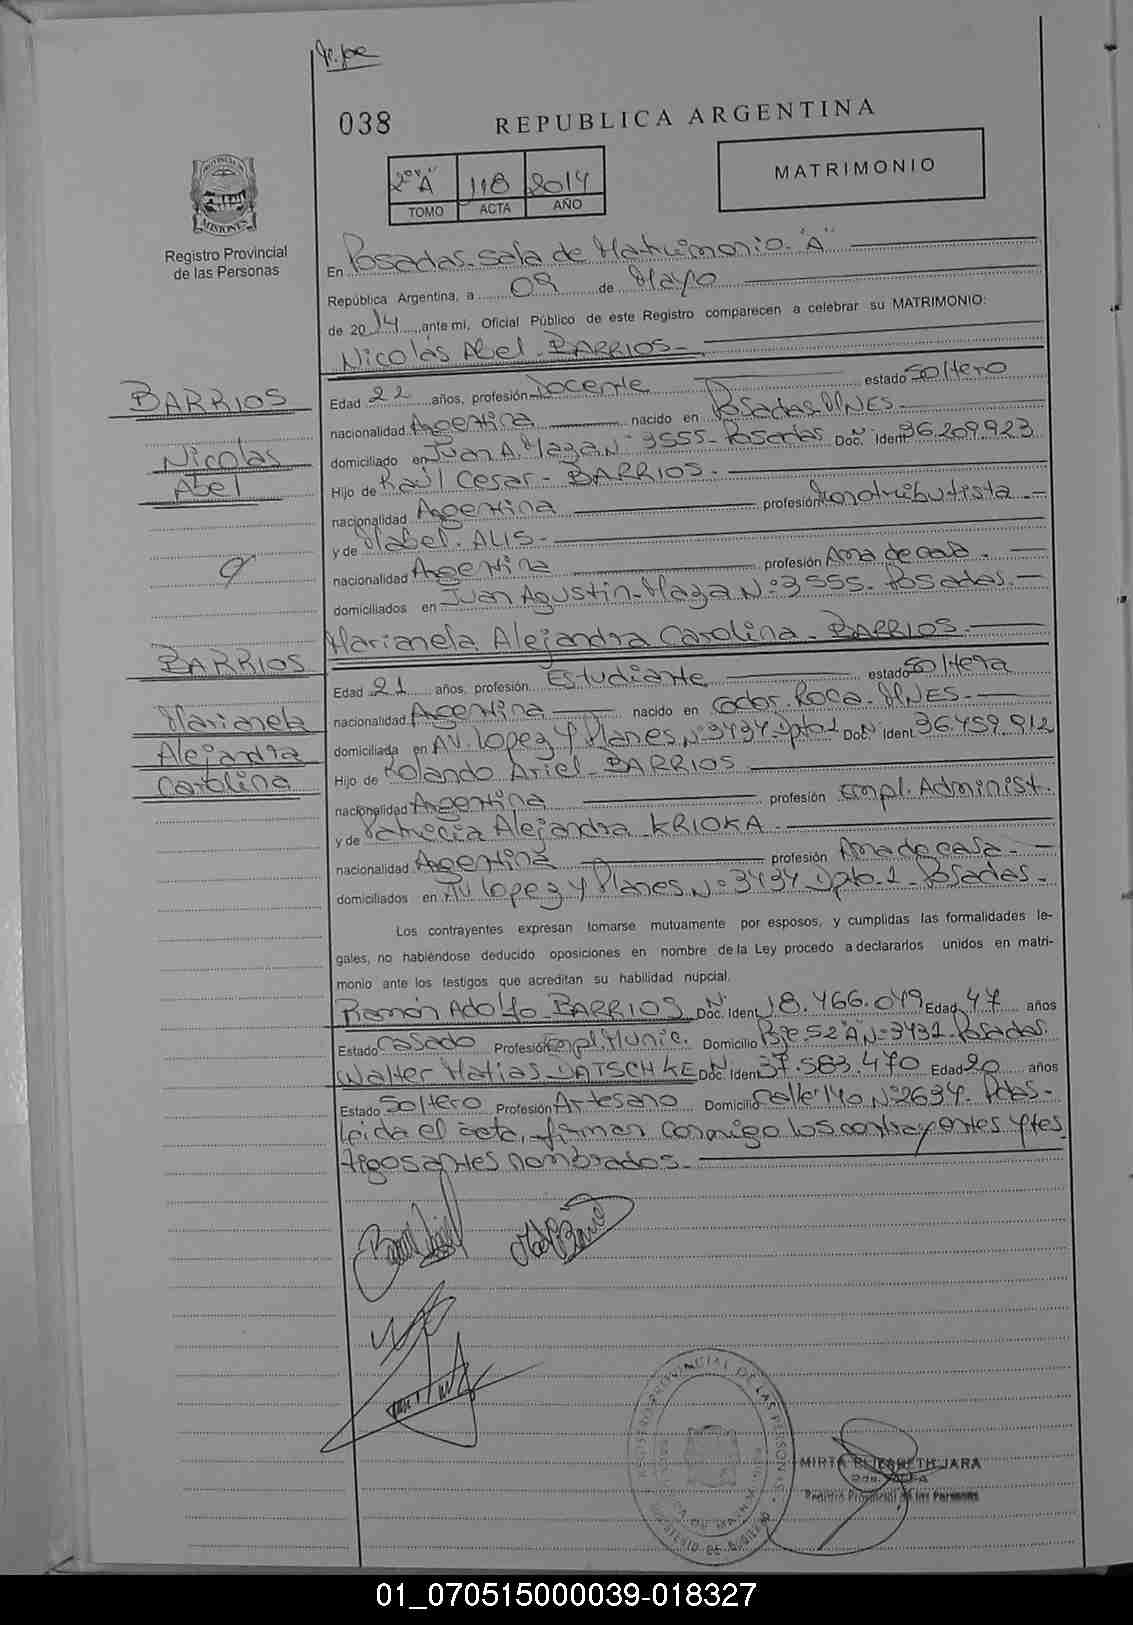 038
REPUBLICA ARGENTINA
MATRIMONIO
2º "A" 118 2014
TOMO ACTA AÑO
PROVINCIA
MISIONES
Registro Provincial
de las Personas
En Posadas. Sala de Matrimonio. "A"
República Argentina, a 09 de Mayo
de 2014, ante mi, Oficial Público de este Registro comparecen a celebrar su MATRIMONIO:
Nicolás Abel. BARRIOS
BARRIOS
Nicolas
Abel
Edad 22 años, profesión Docente estado Soltero
nacionalidad Argentina nacido en Posadas. MNES.
domiciliado en Juan A. Maza. Nº 3555. Posadas Doc. Ident. Nº 36.209.923
Hijo de Raúl Cesar - BARRIOS.
nacionalidad Argentina profesión Monotributista
y de Mabel. ALIS
nacionalidad Argentina profesión Ama de casa.
domiciliados en Juan Agustin. Maza Nº 3555. Posadas.
Marianela Alejandra Carolina. BARRIOS.
BARRIOS
Marianela
Alejandra
Carolina
Edad 21 años, profesión Estudiante estado Soltera
nacionalidad Argentina nacido en Gdor. Roca. MNES.
domiciliada en Av. Lopez y Planes. Nº 3434. Dpto 1 Doc. Ident. Nº 36.459.912
Hijo de Rolando Ariel. BARRIOS
nacionalidad Argentina profesión Empl. Administ.
y de Patricia Alejandra. KRIOKA.
nacionalidad Argentina profesión Ama de casa.
domiciliados en Av. Lopez y Planes. Nº 3434 Dpto. 1. Posadas.
Los contrayentes expresan tomarse mutuamente por esposos, y cumplidas las formalidades le-
gales, no habiéndose deducido oposiciones en nombre de la Ley procedo a declararlos unidos en matri-
monio ante los testigos que acreditan su habilidad nupcial.
Ramón Adolfo BARRIOS Doc. Ident. Nº 18.466.049 Edad 47 años
Estado Casado Profesión Empl. Munic. Domicilio Pje. 52 "A" Nº 3431. Posadas.
Walter Matias. DATSCHKE Doc. Ident. Nº 37.583.470 Edad 20 años
Estado Soltero Profesión Artesano Domicilio Calle 140 Nº 2634. Pdas.
Leida el acta, firman conmigo los contrayentes y tes
tigos antes nombrados.
REGISTRO PROVINCIAL DE LAS PERSONAS
MIRTA ELIZABETH JARA
Registro Provincial de las Personas
01_070515000039-018327